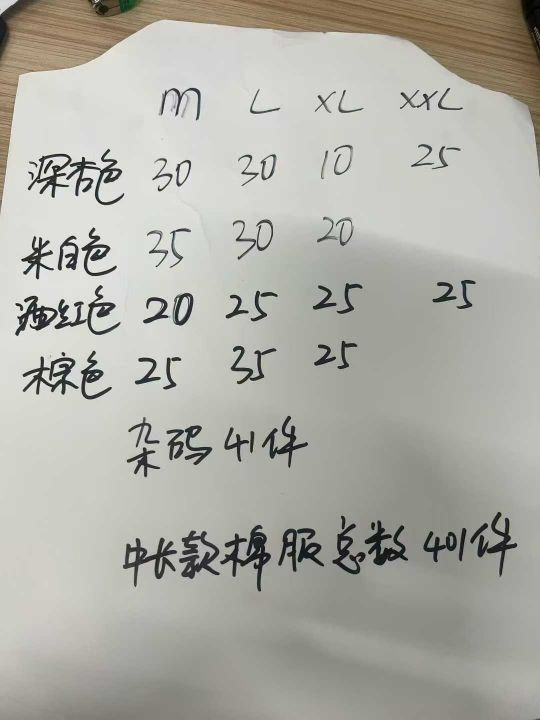 m L XL XXL
深杏色 30 30 10 25
米白色 35 30 20
酒红色 20 25 25 25
棕色 25 35 25
杂码41件
中长款棉服总数401件